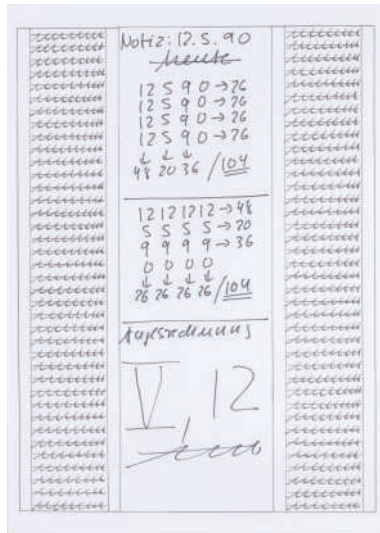 Notiz: 12.5.90
heute
12 5 9 0 → 26
12 5 9 0 → 26
12 5 9 0 → 26
12 5 9 0 → 26
↓ ↓ ↓
48 20 36 / 104
12 12 12 12 → 48
5 5 5 5 → 20
9 9 9 9 → 36
0 0 0 0
↓ ↓ ↓ ↓
26 26 26 26 / 104
Tagesrechnung
V, 12